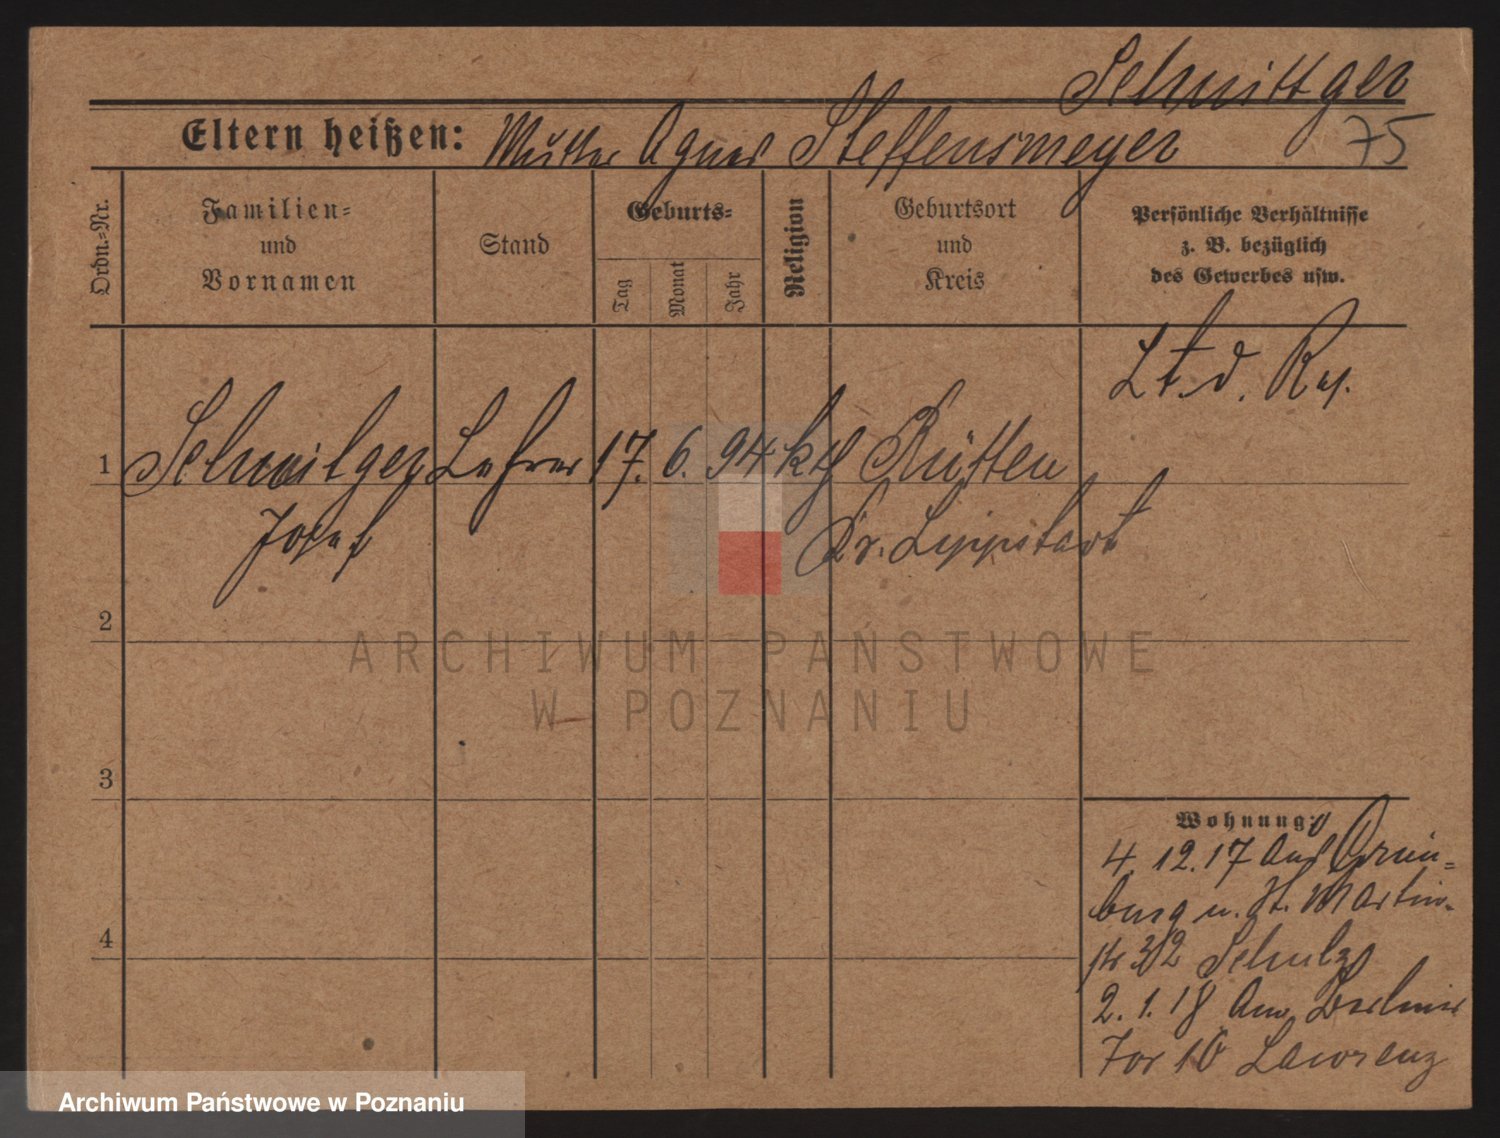 Schmittger
Eltern heißen: Mutter Agnes Steffensmeyer 75
Ordn.=Nr.
Familien=
und
Vornamen
Stand
Geburts=
Tag
Monat
Jahr
Religion
Geburtsort
und
Kreis
Persönliche Verhältnisse
z. B. bezüglich
des Gewerbes usw.
Lt. d. Res.
1 Schmitger Lehrer 17. 6. 94 kth Rütten
Josef Kr. Lippstadt
2
3
4
Wohnung:
4. 12. 17 aus Grün=
burg n. St. Martin-
str 32 Schulz
2. 1. 18 Am Berliner
Tor 10 Lawrenz
ARCHIWUM PAŃSTWOWE
W POZNANIU
Archiwum Państwowe w Poznaniu